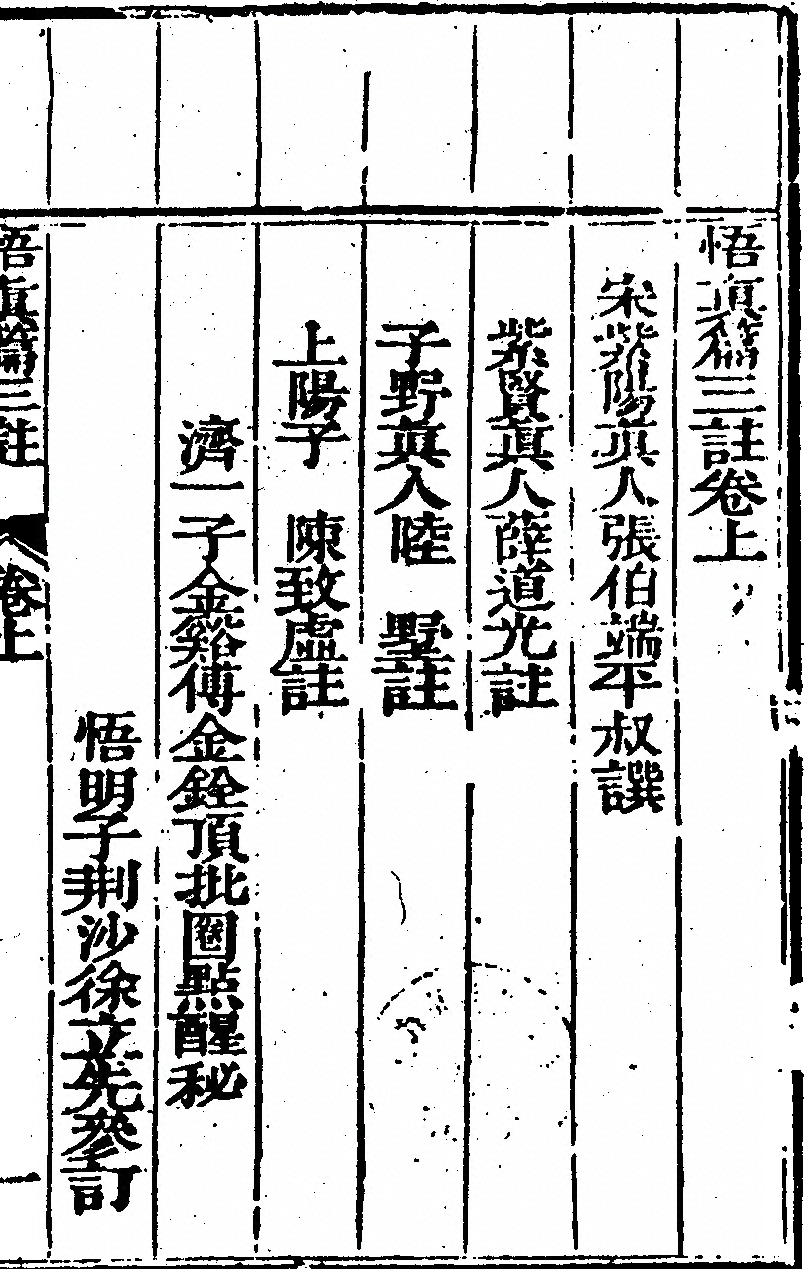 悟真篇三註卷上
宋紫陽真人張伯端平叔譔
紫賢真人薛道光註
子野真人陸　墅註
上陽子　陳致虛註
濟一子金谿傅金銓頂批圈點醒秘
悟明子荆沙徐立先參訂
悟真篇三註　卷上　一